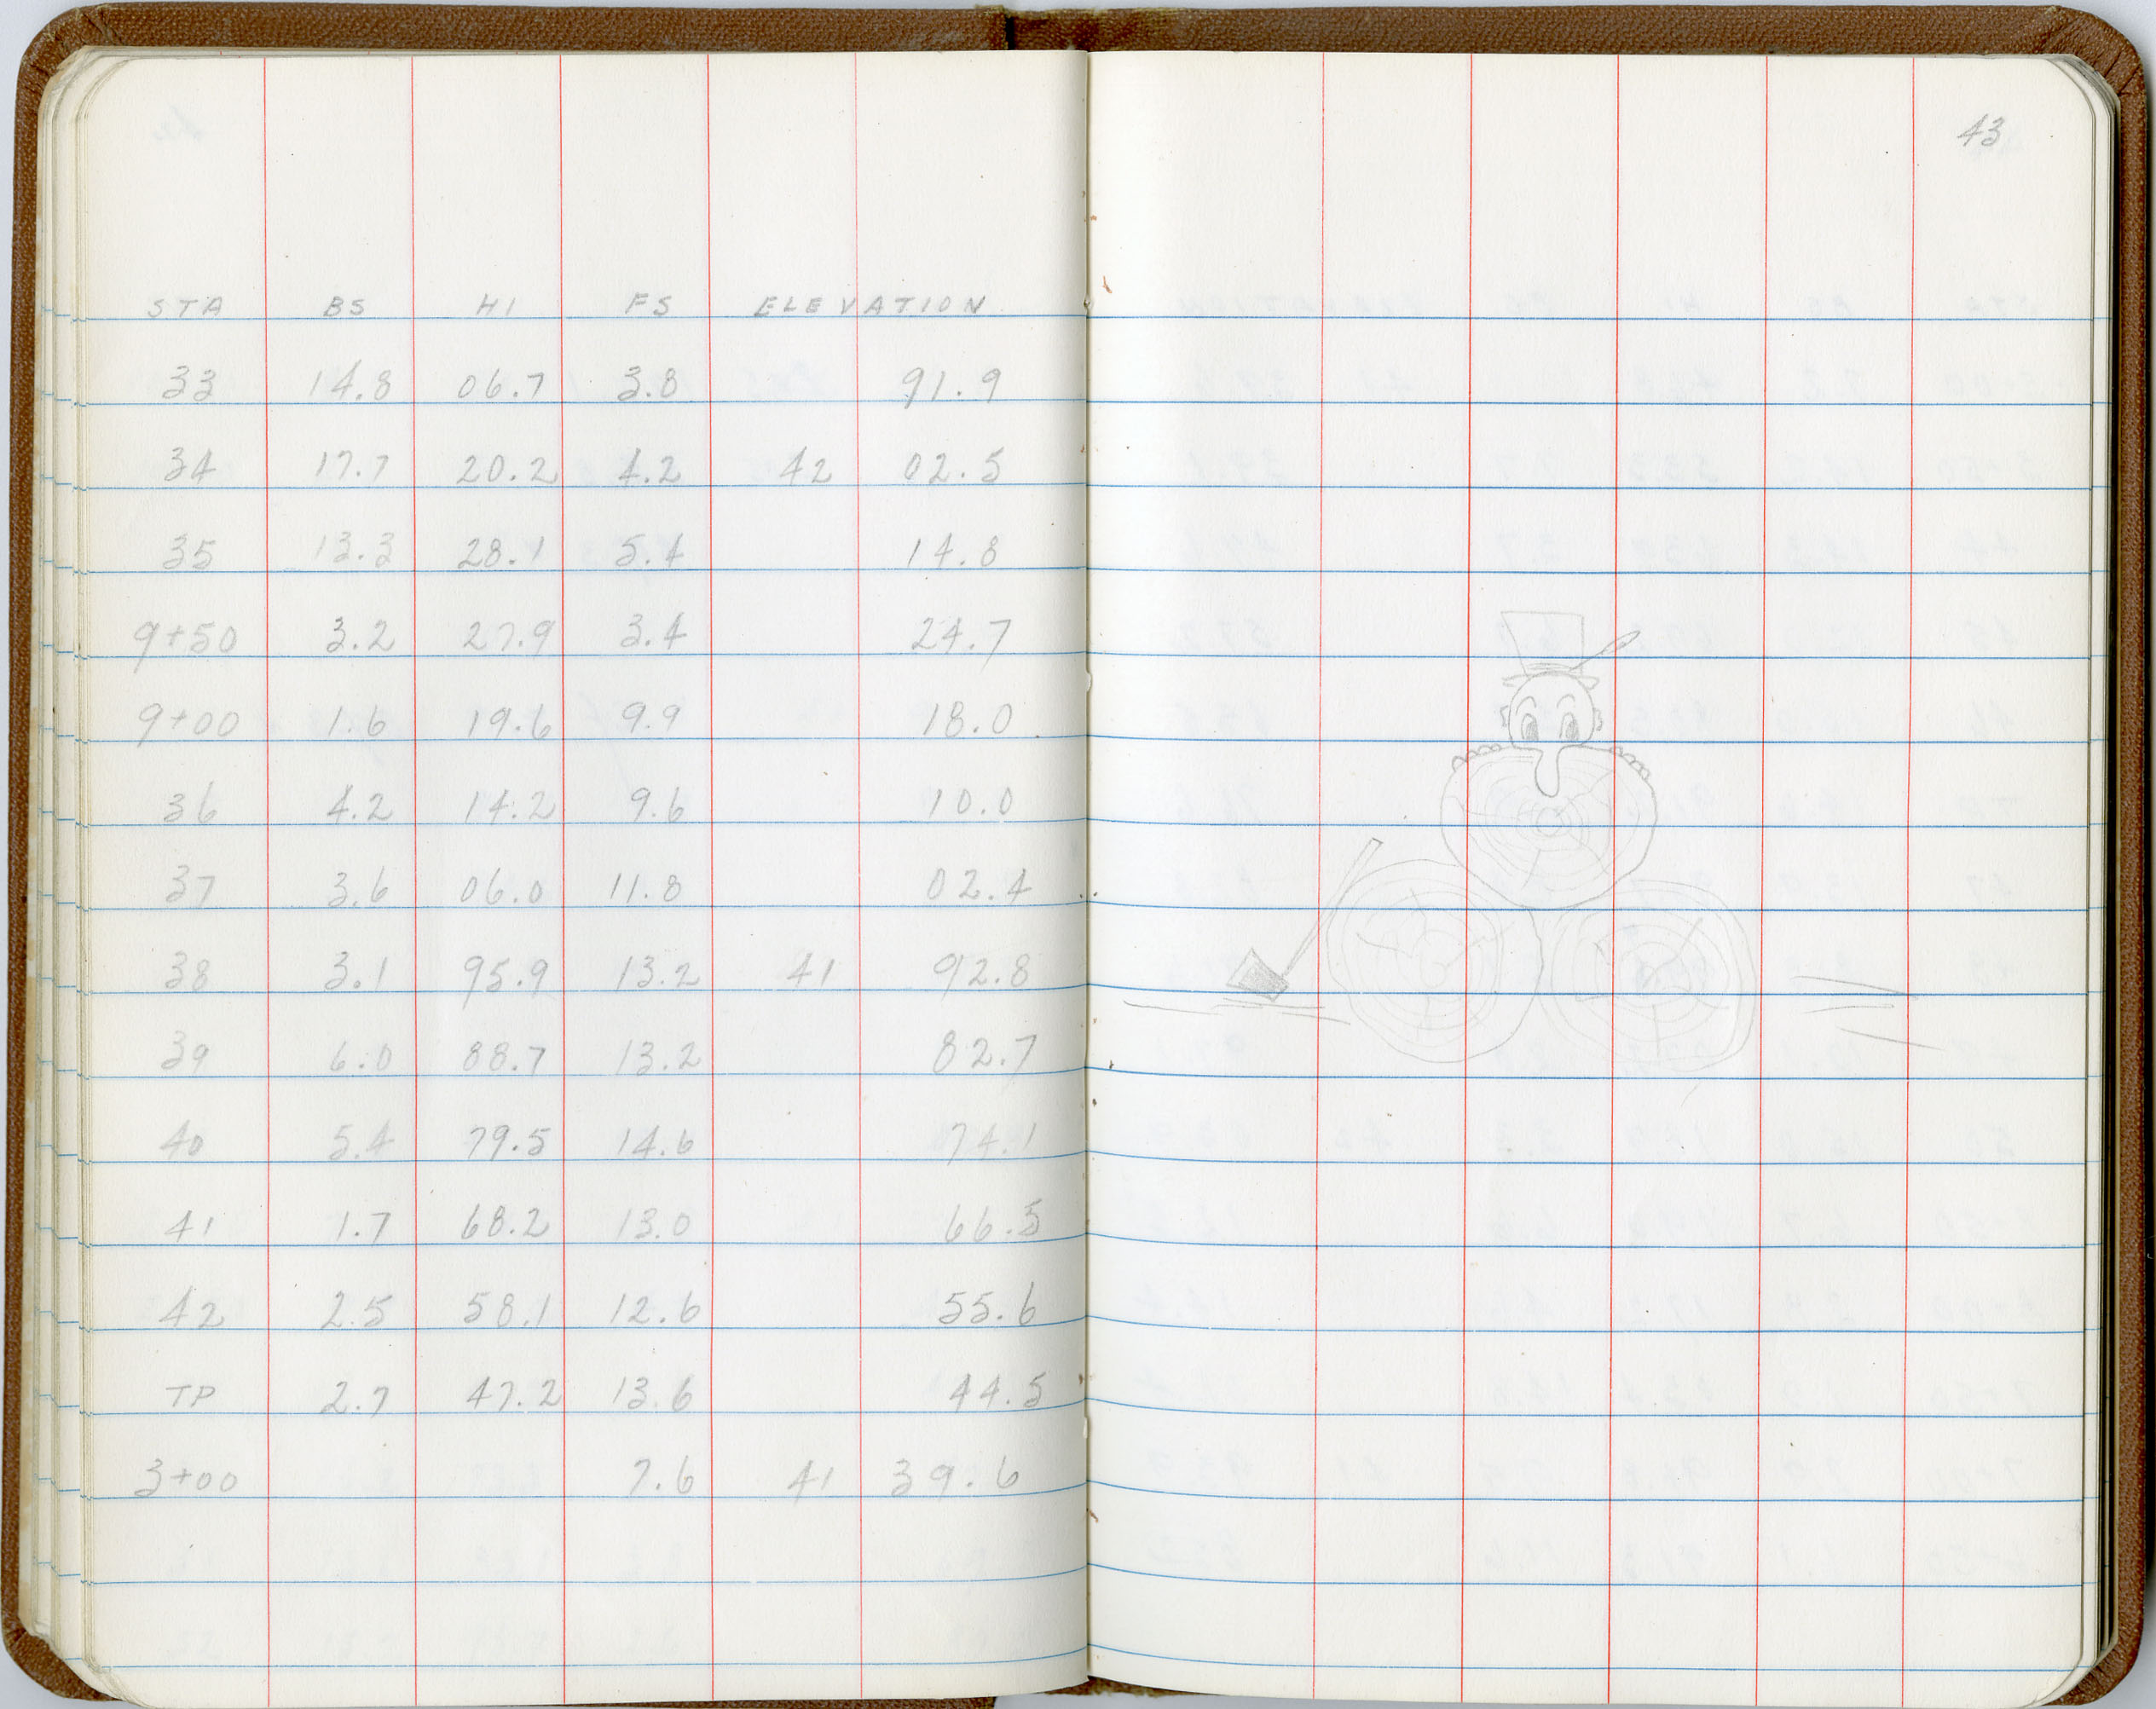 43
STA BS HI FS ELEVATION
33 14.8 06.7 3.8 91.9
34 17.7 20.2 4.2 42 02.5
35 13.3 28.1 5.4 14.8
9+50 3.2 27.9 3.4 24.7
9+00 1.6 19.6 9.9 18.0
36 4.2 14.2 9.6 10.0
37 3.6 06.0 11.8 02.4
38 3.1 95.9 13.2 41 92.8
39 6.0 88.7 13.2 82.7
40 5.4 79.5 14.6 74.1
41 1.7 68.2 13.0 66.5
42 2.5 58.1 12.6 55.6
TP 2.7 47.2 13.6 44.5
3+00 7.6 41 39.6